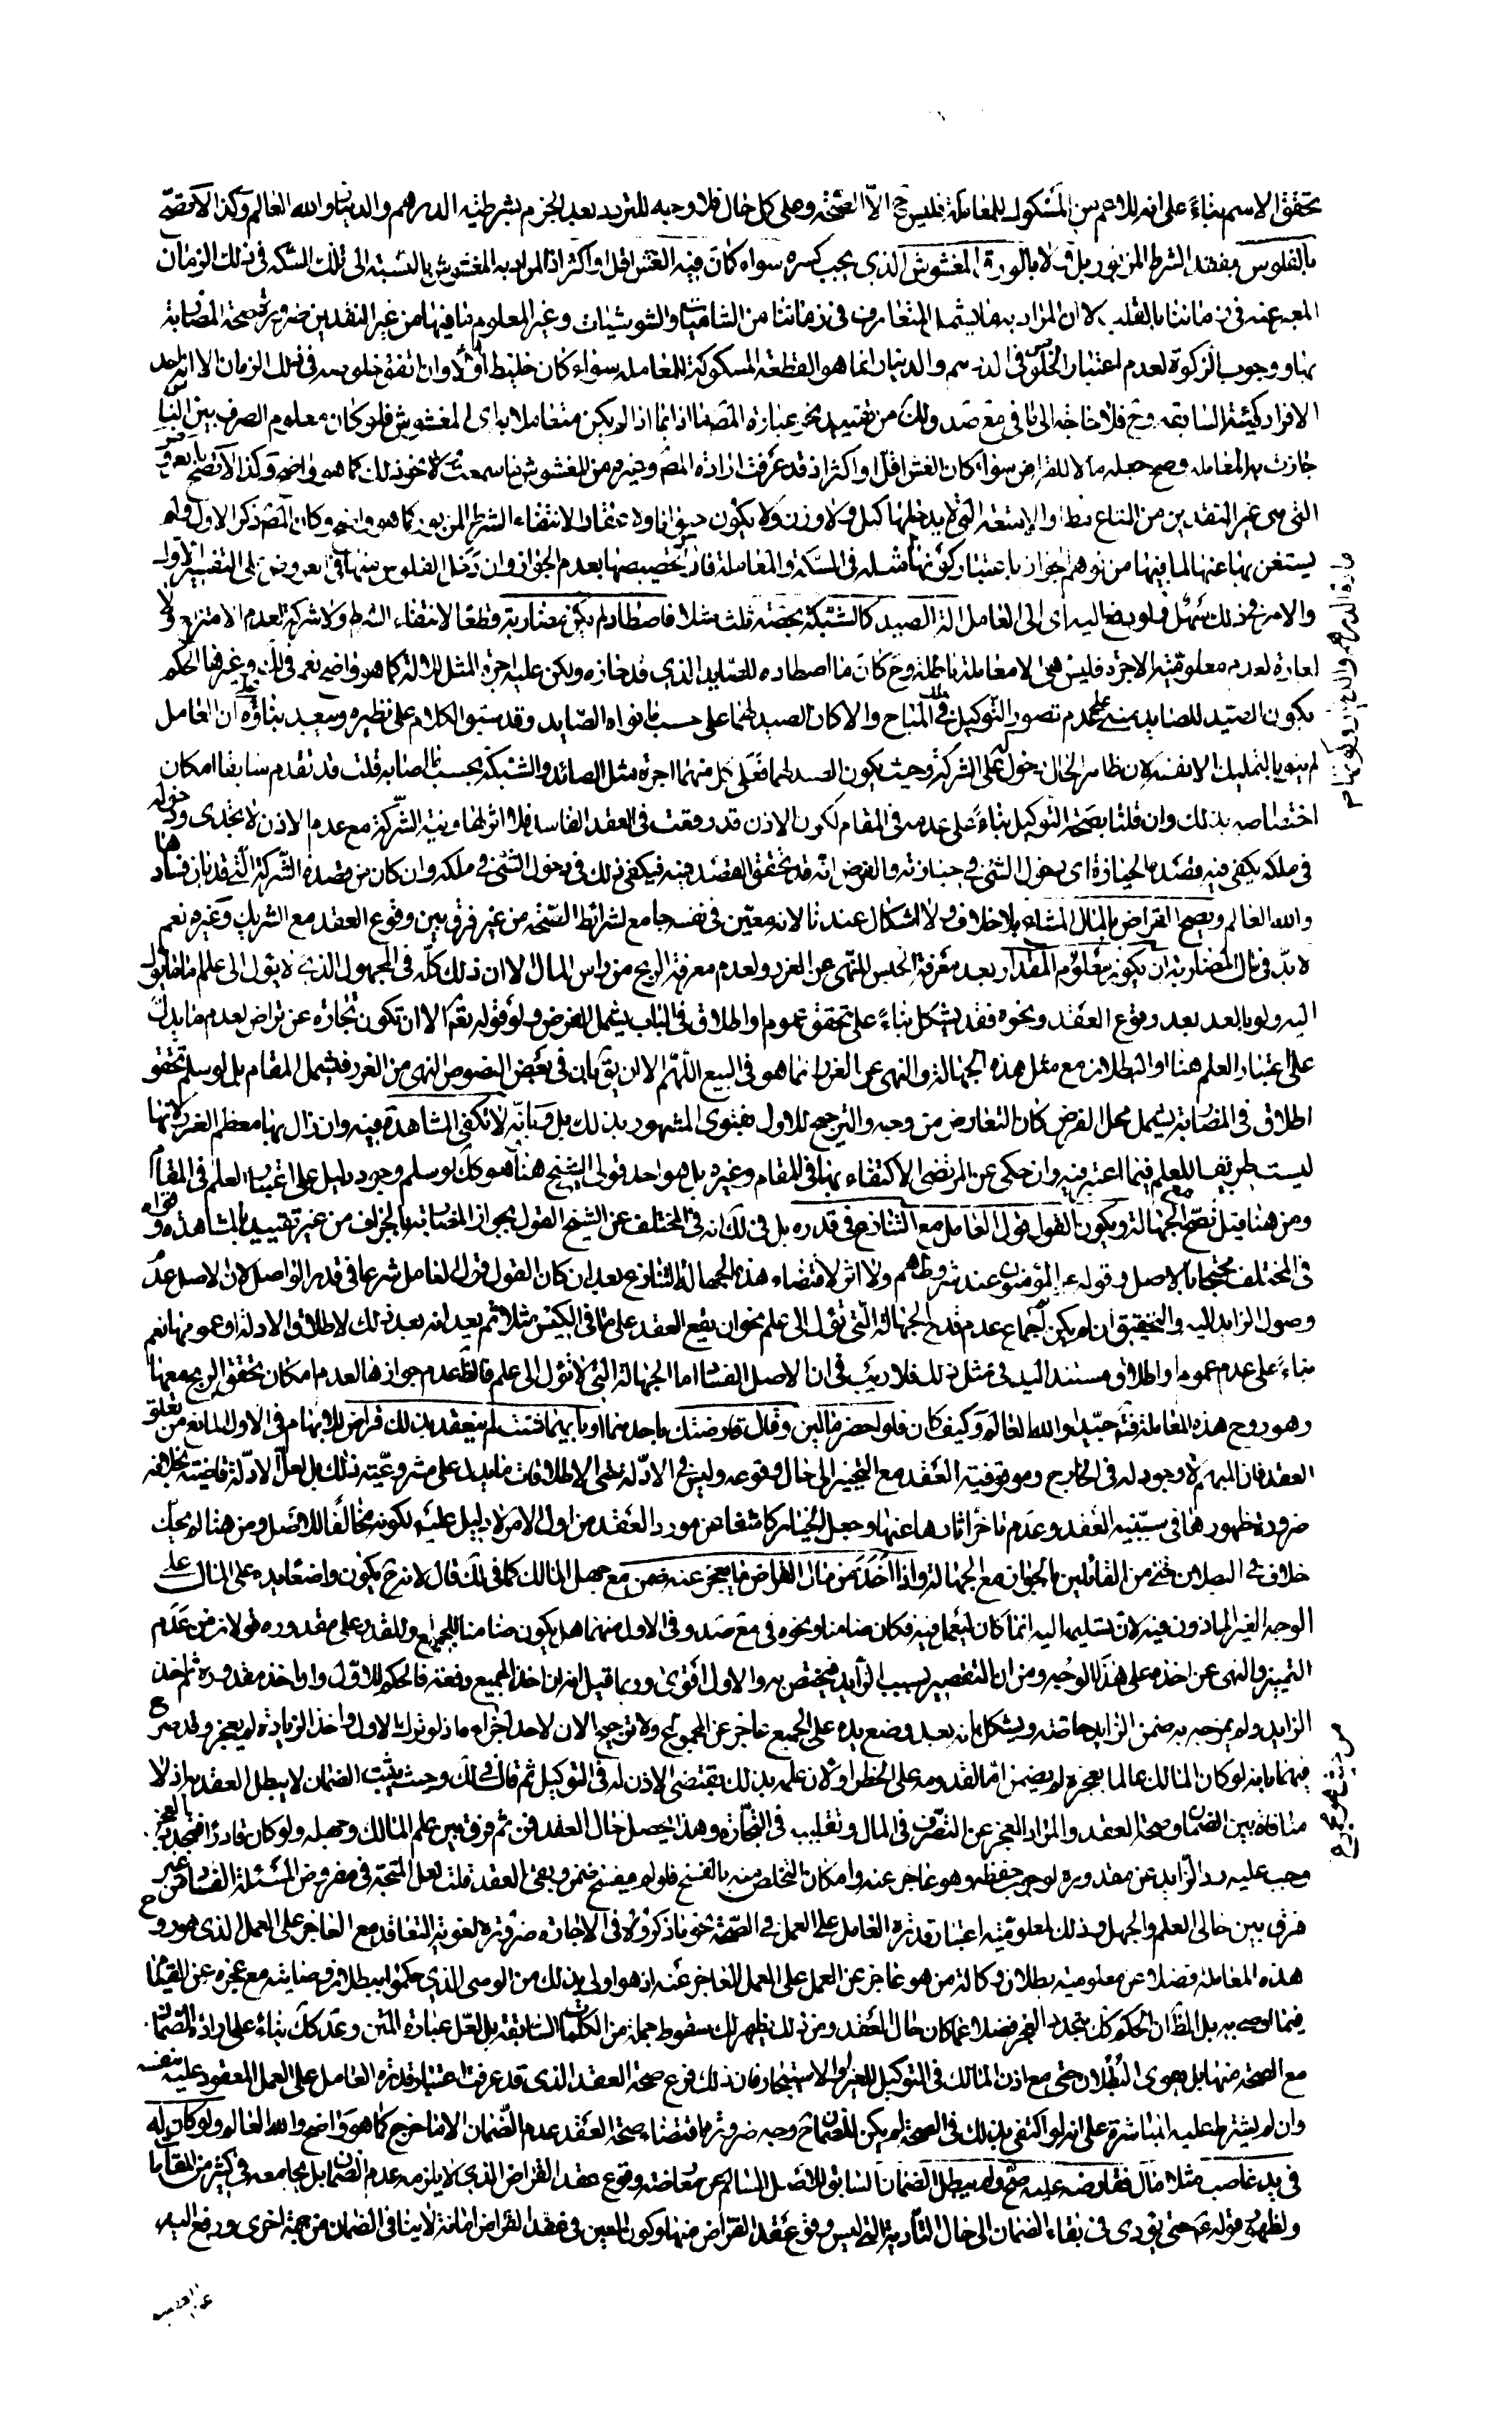 تحقق الاسم بناء على انه للاعم من المسكوك للمعاملة فليس ح الا الصحة وعلى كل حال فلا وجه للترديد بعد الجزم بشرطية الدراهم والدنانير والله العالم وكذا لا تصح
بالفلوس بفقد الشرط المزبور بل ولا بالورق المغشوش الذي يجب كسره سواء كان فيه الغش اقل او اكثر اذ المراد به المغشوش بالنسبة الى تلك السكة في ذلك الزمان
المعبر عنه في زماننا بالقلب لا ان المراد به ما يشمل المتعارف في زماننا من الشاميات والشوشيات وغير المعلوم ما فيها من غير النقدين ضرورة صحة المضاربة
بها ووجوب الزكوة لعدم اعتبار الخلوص في الدرهم والدينار انما هو القطعة المسكوكة للمعاملة سواء كان خليط او لا وان اتفق خلوصه في ذلك الزمان الا انه احد
الافراد كهيئة السابقة وح فلا حاجة الى ما في مع صد ولك من تقييد نحو عبارة المصنف اذا لم يكن متعاملا به اي المغشوش فلو كان معلوم الصرف بين الناس
جازت به المعاملة وصح جعله مالا للقراض سواء كان الغش اقل او اكثر اذ قد عرفت ارادة المصنف وغيره من المغشوش ما سمعت لا نحو ذلك كما هو واضح وكذا لا تصح بالعروض
التي هي غير النقدين من المتاع
يستغن بها عنها لما فيها من توهم الجواز باعتبار كونها مثله في السكة والمعاملة فاراد تخصيصها بعدم الجواز وان دخل الفلوس منها في العروض على التفسير الاول
والامر في ذلك سهل فلو دفع اليه اي الى العامل الة الصيد كالشبكة بحصة ثلث مثلا فاصطاد لم يكن مضاربة قطعا لانتفاء الشرط ولا شركة لعدم الامتزاج ولا
اجارة لعدم معلومية الاجرة فليس هي الا معاملة باطلة وح كان ما اصطاده للصايد الذي قد حازه ولكن عليه اجرة المثل للالة كما هو واضح نعم في لك وغيرها الحكم
بكون الصيد للصايد مبني على عدم تصور التوكيل في تملك المباح والا كان الصيد لهما على حسب ما نواه الصايد وقد سبق الكلام على نظيره ويبعد بناؤه ان العامل
لم ينو بالتمليك الا نفسه لان ظاهر الحال دخوله على الشركة وحيث يكون الصيد لهما فعلى كل منهما اجرة مثل الصائد والشبكة بحسب ما اصابه قلت قد تقدم سابقا امكان
اختصاصه بذلك وان قلنا بصحة التوكيل بناء على عدمه في المقام لكون الاذن قد وقعت في العقد الفاسد فلا اثر لها ونية الشركة مع عدم الاذن لا تجدى ودخوله
في ملكه يكفي فيه قصد الحيازة اي دخول الشيء في حيازته والفرض انه قد تحقق القصد فيه فيكفي ذلك في دخول الشيء في ملكه وان كان من قصده الشركة التي قد بان فسادها
والله العالم ويصح القراض بالمال المشاع بلا خلاف ولا اشكال عندنا لانه معين في نفسه جامع لشرائط الصحة من غير فرق بين وقوع العقد مع الشريك وغيره نعم
لا بد في مال المضاربة ان يكون معلوم المقدار بعد معرفة الجنس للنهي عن الغرر ولعدم معرفة الربح من راس المال الا ان ذلك كله في المجهول الذي لا يؤل الى علم اما ما يؤل
اليه ولو بالعد بعد وقوع العقد ونحوه فقد يشكل بناء على تحقق عموم او اطلاق في الباب يشمل الفرض ولو قوله تعالى الا ان تكون تجارة عن تراض لعدم ما يدل
على اعتبار العلم هنا او البطلان مع مثل هذه الجهالة والنهي عن الغرر انما هو في البيع اللهم الا ان يقال بان في بعض النصوص النهي عن الغرر فيشمل المقام بل لو سلم تحقق
اطلاق في المضاربة يشمل محل الفرض كان التعارض من وجه والترجيح للاول بفتوى المشهور بذلك بل وبانه لا تكفي المشاهدة فيه وان زال بها معظم الغرر لانها
ليست طريقا للعلم فيما اعتبر فيه وان حكي عن المرتضى الاكتفاء بها في المقام وغيره بل هو احد قولي الشيخ هنا هو كك لو سلم وجود دليل على اعتبار العلم في المقام
ومن هنا قيل تصح مع الجهالة ويكون القول قول العامل مع التنازع في قدره بل في لك انه في المختلف عن الشيخ القول بجواز المضاربة بالجزاف من غير تقييد بالمشاهدة وقواه
في المختلف محتجا بالاصل وقوله ع المؤمنون عند شروطهم ولا اثر لاقتضاء هذه الجهالة التنازع بعد ان كان القول قول العامل شرعا في قدر الواصل لان الاصل عدم
وصول الزايد اليه والتحقيق ان لم يكن اجماع عدم قدح الجهالة التي تؤل الى علم نحو ان يقع العقد على ما في الكيس مثلا ثم يعد انه بعد ذلك لاطلاق الادلة او عمومها نعم
بناء على عدم عموم او اطلاق مستند اليه في مثل ذلك فلا ريب في ان الاصل الفساد اما الجهالة التي لا تؤل الى علم فالظاهر عدم جوازها لعدم امكان تحقق الربح معها
وهو روح هذه المعاملة فتامل جيدا والله العالم وكيف كان فلو احضر مالين وقال قارضتك باحدهما او بايهما شئت لم ينعقد بذلك قراض للابهام في الاول المانع من تعلق
العقد فان المبهم لا وجود له في الخارج وموقوفية العقد مع التخيير الى حال وقوعه وليس في الادلة حتى الاطلاقات ما يدل على مشروعية ذلك بل لعل الادلة قاضية بخلافه
ضرورة ظهورها في سببية العقد وعدم تاخر اثارها عنها وجعل الخيار كاشفا عن مورد العقد من اول الامر لا دليل عليه لكونه مخالفا للاصل ومن هنا لم يحك
خلاف في البطلان حتى من القائلين بالجواز مع الجهالة واذا اخذ من مال القراض ما يعجز عنه ضمن مع جهل المالك كما في لك قال لانه ح يكون واضعا يده على المال على
الوجه الغير الماذون فيه لان تسليمه اليه انما كان ليعمل فيه فكان ضامنا ونحوه في مع صد وفي الاول منهما هل يكون ضامنا للجميع او للقدر الزائد على مقدوره قولان من عدم
التمييز والنهي عن اخذه على هذا الوجه ومن ان التقصير بسبب الزايد فيختص به والاول اقوى وربما قيل انه ان اخذ الجميع دفعة فالحكم للاول وان اخذ مقدوره ثم اخذ
الزايد ولم يمزجه به ضمن الزايد خاصة ويشكل بانه بعد وضع يده على الجميع عاجز عن المجموع ولا ترجيح الان لاحد اجزائه اذ لو ترك الاول واخذ الزيادة لم يعجز وقد صرح
فيهما بانه لو كان المالك عالما بعجزه لم يضمن اما لقدومه على الخطر او لان علمه بذلك يقتضي الاذن له في التوكيل ثم قال في لك وحيث يثبت الضمان لا يبطل العقد به اذ لا
منافاة بين الضمان وصحة العقد والمراد العجز عن التصرف في المال وتقليبه في التجارة وهذا يحصل حال العقد فمن ثم فرق بين علم المالك وجهله ولو كان قادرا فتجدد العجز
وجب عليه رد الزايد عن مقدوره لوجوب حفظه وهو عاجز عنه وامكان التخلص منه بالفسخ فلو لم يفسخ ضمن وبقي العقد قلت لعل المتجه في مفروض المسئلة الفساد من غير
فرق بين حالي العلم والجهل وذلك لمعلومية اعتبار قدرة العامل على العمل في الصحة نحو ما ذكروه في الاجارة ضرورة لغوية التعاقد مع العاجز على العمل الذي هو روح
هذه المعاملة فضلا عن معلومية بطلان وكالة من هو عاجز عن العمل على العمل العاجز عنه اذ هو اولى بذلك من الوصي الذي حكموا ببطلان وصايته مع عجزه عن القيام
فيما اوصى به بل الظاهر ان الحكم كك بتجدد العجز فضلا عما كان حال العقد ومن ذلك يظهر لك سقوط جملة من الكلمات السابقة بل لعل عبارة المتن وعد كك بناء على ارادة الضمان
مع الصحة منها بل يقوى البطلان حتى مع اذن المالك في التوكيل للغير او الاستيجار فان ذلك فرع صحة العقد الذي قد عرفت اعتبار قدرة العامل على العمل المعقود عليه بنفسه
وان لم يشترط عليه المباشرة على انه لو اكتفي بذلك في الصحة لم يكن للضمان ح وجه ضرورة اقتضاء صحة العقد عدم الضمان الا ما خرج كما هو واضح والله العالم ولو كان له
في يد غاصب مثلا مال فقارضه عليه صح ولم يبطل الضمان السابق للاصل السالم عن معارضة وقوع عقد القراض الذي لا يلزمه عدم الضمان بل يجامعه في كثير من المقامات
ولظهور قوله ع حتى يؤدى في بقاء الضمان الى حال التادية التي ليس وقوع عقد القراض منها وكون العين في عقد القراض امانة لا ينافي الضمان من جهة اخرى ورفع اليد